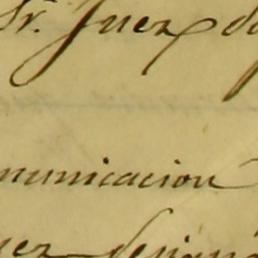 Sr. Juez d
municacion
uez